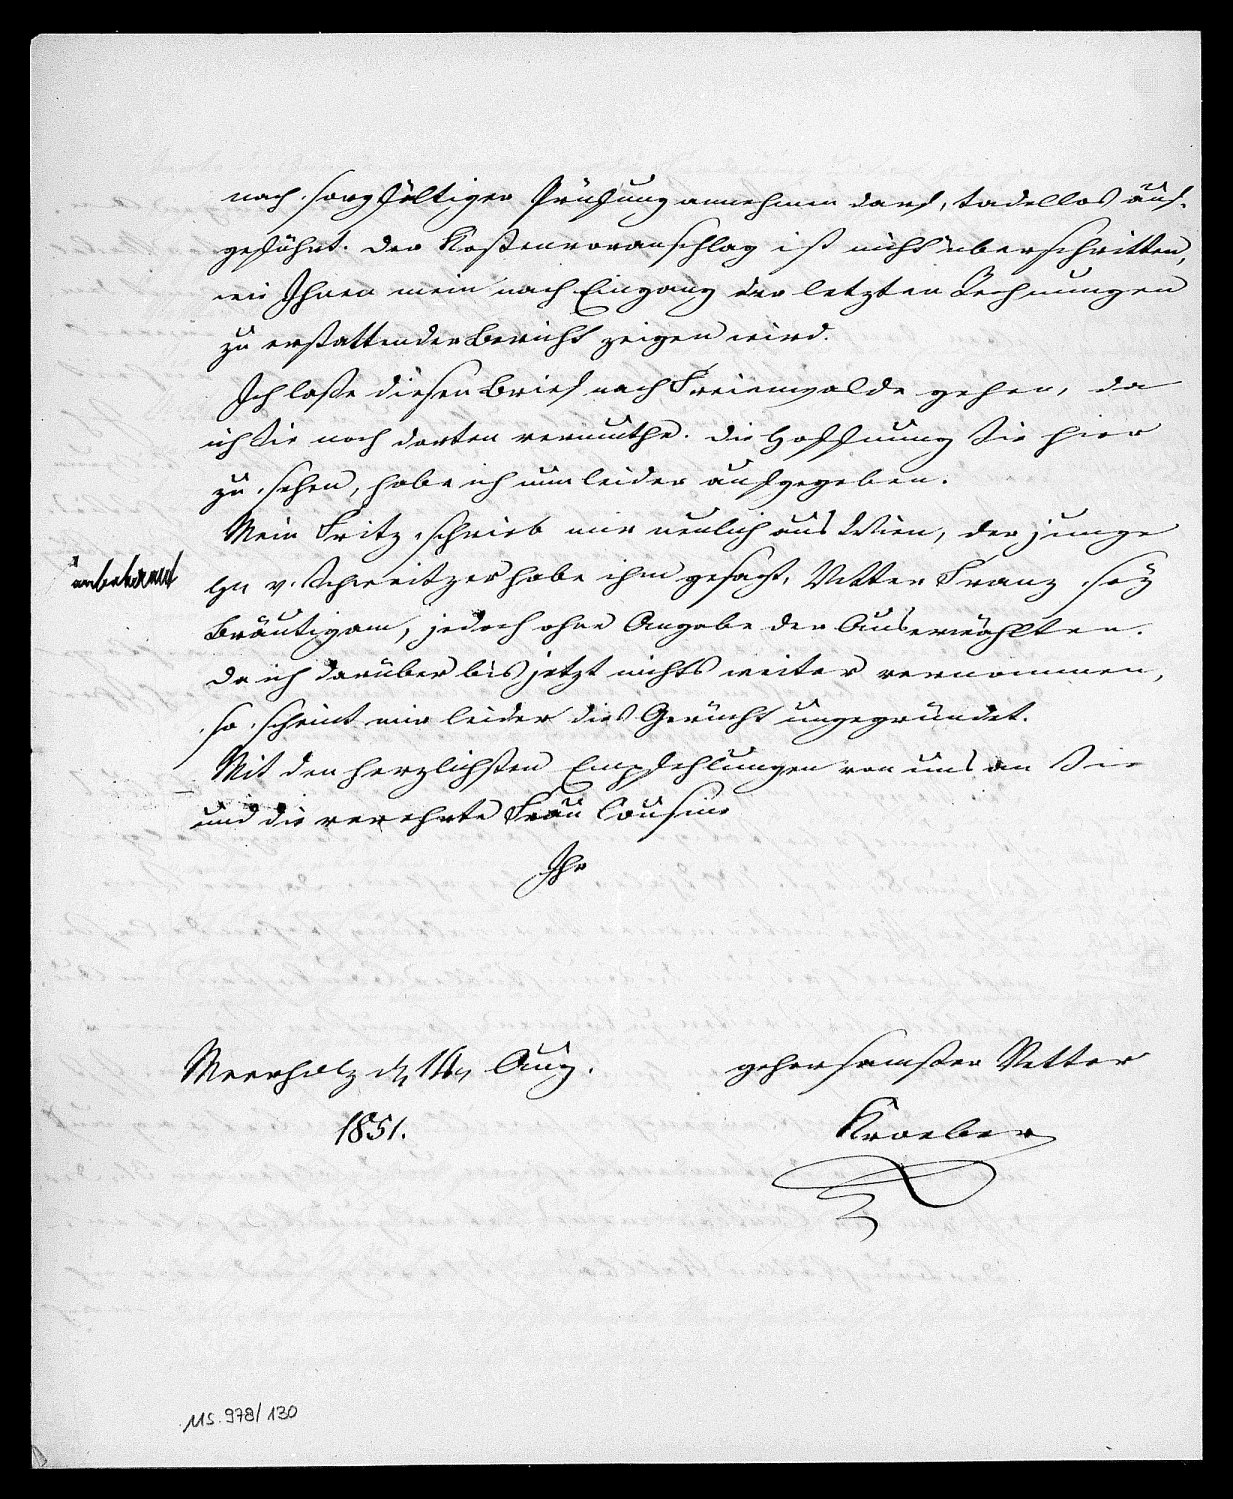 nach sorgfältiger Prüfung annehmen darf, tadellos aus-
geführt. Der Kostenvoranschlag ist nicht überschritten,
wie Ihnen mein nach Eingang der letzten Rechnungen
zu erstattender Bericht zeigen wird.
Ich laße diesen Brief nach Freienwalde gehen, da
ich Sie noch dorten vermuthe. Die Hoffnung Sie hier
zu sehen, habe ich nun leider aufgegeben.
Mein Fritz schrieb mir neulich aus Wien, der junge
unbekannt
Hr v. Schweitzer habe ihm gesagt, Vetter Franz sey
Bräutigam, jedoch ohne Angabe der Auserwählten.
Da ich darüber bis jetzt nichts weiter vernommen,
so scheint mir leider dies Gerücht ungegründet.
Mit den herzlichsten Empfehlungen von uns an Sie
und die verehrte Frau Cousine
Ihr
Meerholz d. Aug. gehorsamster Vetter
1851. Kroeber
MS. 978/130